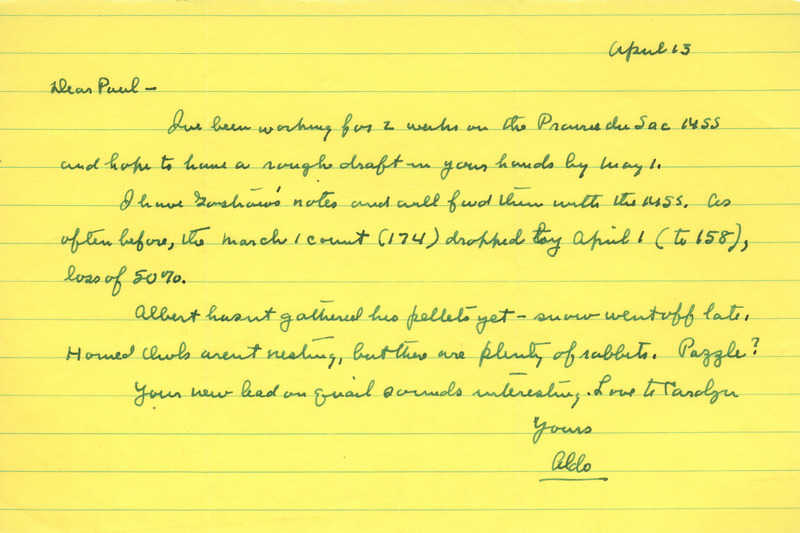 April 13
Dear Paul -
I've been working for 2 weeks on the Prairie du Sac MSS
and hope to have a rough draft in your hands by May 1.
I have notes and will fwd them with the MSS. As
often before, the March 1 count (174) dropped by April 1 (to 158),
loss of 50%.
Albert hasnt gathered his pellets yet - snow went off late.
Horned Owls arent nesting, but there are plenty of rabbits. Puzzle?
Your new lead on quail sounds interesting. Love to Carolyn
Yours
Aldo